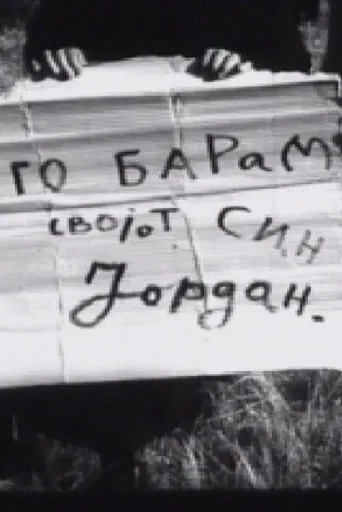 го БАРаМ
својот Син
Јордан.